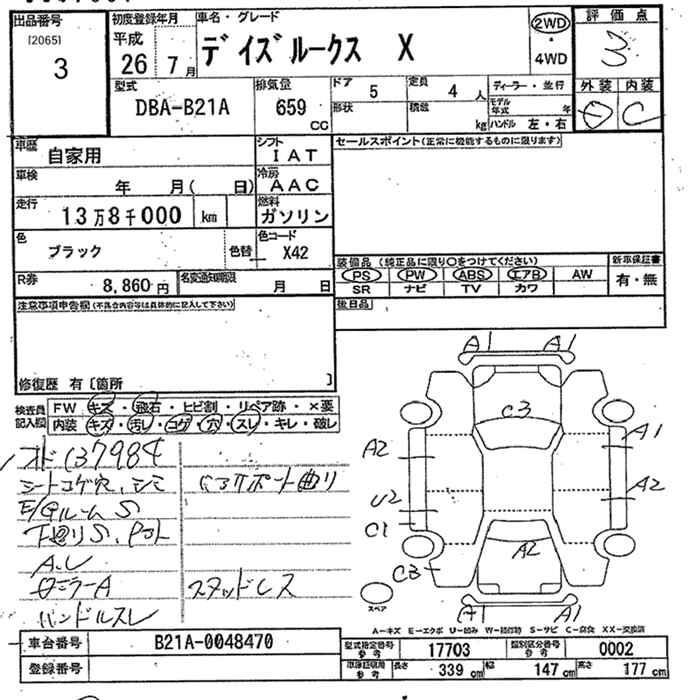 出品番号 初度登録年月 車名・グレード 評価点
[2065] 平成 2WD
3 26 7月 デイズルークス X ・ 3
4WD
型式 排気量 ドア 5 定員 4人 ディーラー・並行 外装 内装
DBA-B21A 659 CC 形状 積載 kg モデル年式 年 D C
ハンドル 左・右
車歴 自家用 シフト IAT セールスポイント(正常に機能するものに限ります)
車検 年 月( 日) 冷房 AAC
走行 13万8千000 km 燃料 ガソリン
色 ブラック 色替 色コード X42 装備品 (純正品に限り○をつけてください) 新車保証書
R券 8,860円 名変通知期限 月 日 PS PW ABS エアB AW 有・無
SR ナビ TV カワ
注意事項申告欄(不具合内容等は具体的に記入して下さい) 後日品
修復歴 有〔箇所 〕
検査員記入欄 FW キズ・飛石・ヒビ割・リペア跡・×要
内装 キズ・汚レ・コゲ・穴・スレ・キレ・破レ
オド137984
シートコゲ穴、シミ C3サポート曲り
E/Gルーム S
下回りS、
A.L
ミラーA スタッドレス
ハンドルスレ
A1 A1
C3
A2 A1
U2 A2
C1
C3 A2
スペア A1 A1
A-キズ E-エクボ U-凹み W-補修跡 S-サビ C-腐食 XX-交換済
車台番号 B21A-0048470 型式指定番号 参考 17703 類別区分番号 参考 0002
登録番号 車庫証明用 参考 長さ 339 cm 幅 147 cm 高さ 177 cm